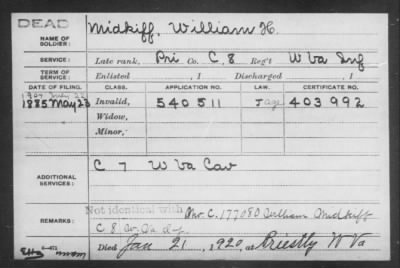 DEAD
NAME OF SOLDIER: Midkiff, William H.
SERVICE: Late rank, Pri Co. C, 8 Reg't W Va Inf
TERM OF SERVICE: Enlisted , 1 Discharged , 1
DATE OF FILING. CLASS. APPLICATION NO. LAW. CERTIFICATE NO.
1885 May 23 Invalid, 540511 403992
Widow,
Minor,
ADDITIONAL SERVICES: C 7 W Va Cav
REMARKS: Not identical with C. 177080 William Midkiff
C 8
Died Jan 21, 1920, at Priestly W Va